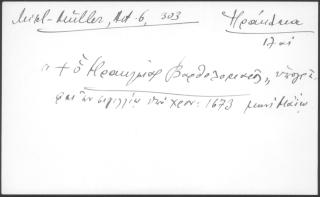 Mikl-Müller, Act. 6, 303
Ἡράκλεια
17 αἰ
"+ ὁ Ἡρακλείας Βαρθολομαῖος", ὑπογρά-
φει ἐν σιγιλλίῳ ὑπὸ χρον: 1673 μηνὶ Μαΐῳ